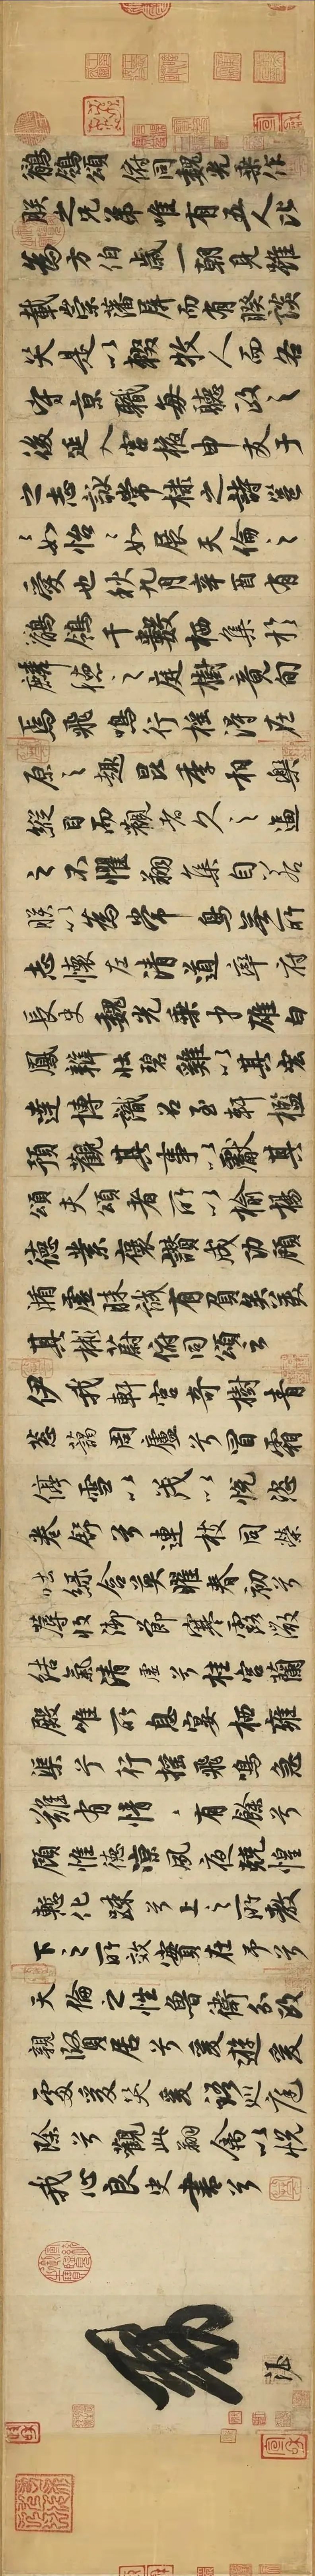 鶺鴒頌 俯同魏光乘作
朕之兄弟唯有五人比
為方伯歲一朝見雖
載崇藩屏而有睽談
笑是以輟牧人而各
守京職每聽政之
後延入宮掖申友于
之志詠常棣之詩邕
〻如怡〻如展天倫之
愛也秋九月辛酉有
鶺鴒千數栖集於
麟德之庭樹竟旬
焉飛鳴行搖得在
原之趣昆季相樂
縱目而觀者久之逼
之不懼翔集自若
朕以為常鳥無所
志懷左清道率府
長史魏光乘才雄白
鳳辯壯碧雞以其宏
達博識召至軒楹
預觀其事以獻其
頌夫頌者所以揄揚
德業褒讚成功顧
循虛昧誠有負矣美
其彬蔚俯同頌云
伊我軒宮奇樹青
蔥藹周廬兮冒霜
停雪以茂以悅恣
卷舒兮連枝同榮
吐綠含英曜春初兮
蓐收御節寒露微
結氣清虛兮桂宮蘭
殿唯所息宴栖雍
渠兮行搖飛鳴急
難有情〻有餘兮
顧惟德涼夙夜兢惶
慙化疎兮上之所教
下之所效實在予兮
天倫之性魯衛分政
親賢居兮爰遊爰
處爰笑爰語巡庭
除兮觀此翔禽以悅
我心良史書兮
敕